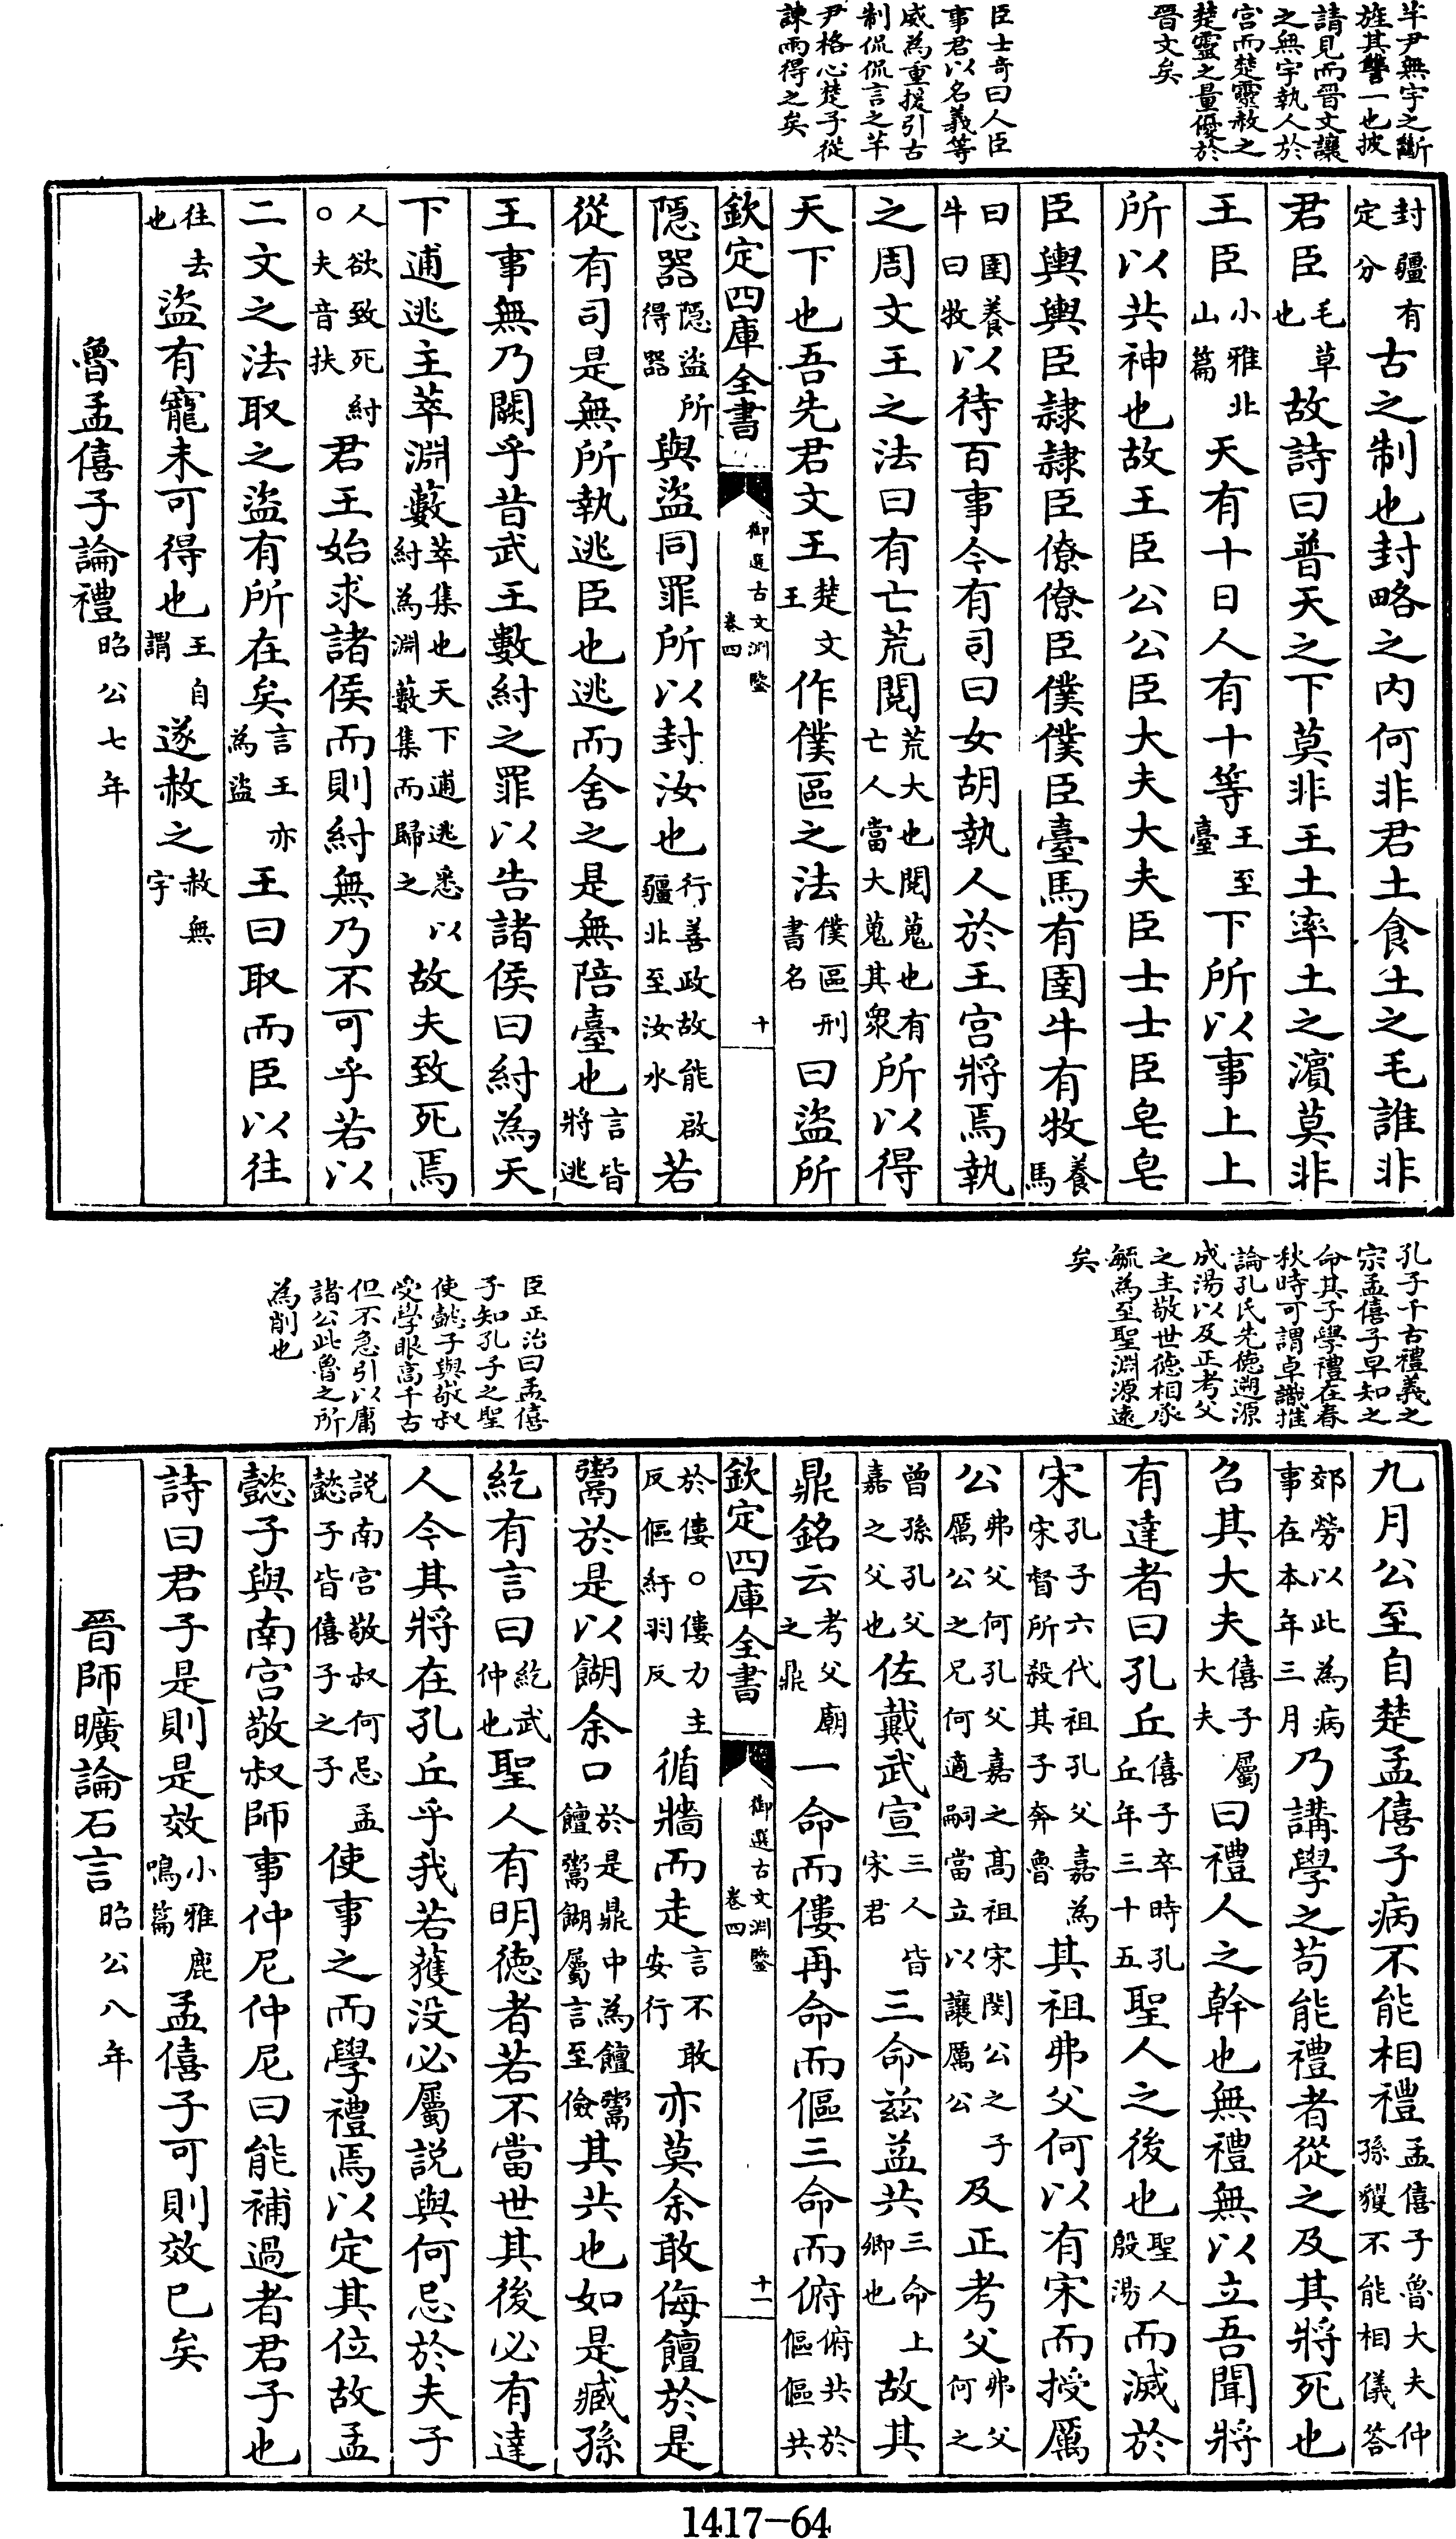 芊尹無宇之斷
旌其讐一也披
請見而晉文讓
之無宇執人於
宮而楚靈赦之
楚靈之量優於
晉文矣
臣士奇曰人臣
事君以名義等
威為重援引古
制侃侃言之芊
尹格心楚子從
諫兩得之矣
封疆有定分古之制也封略之内何非君土食土之毛誰非
君臣毛草也故詩曰普天之下莫非王土率土之濱莫非
王臣小雅北山篇天有十日人有十等王至臺下所以事上上
所以共神也故王臣公公臣大夫大夫臣士士臣皂皂
臣輿輿臣隷隷臣僚僚臣僕僕臣臺馬有圉牛有牧養馬
曰圉養牛曰牧以待百事今有司曰女胡執人於王宫將焉執
之周文王之法曰有亡荒閱荒大也閱蒐也有亡人當大蒐其衆所以得
天下也吾先君文王楚文王作僕區之法僕區刑書名曰盜所
欽定四庫全書
御選古文淵鑒
卷四
十
隱器隱盜所得器與盜同罪所以封汝也行善政故能啟疆北至汝水若
從有司是無所執逃臣也逃而舍之是無陪臺也言皆將逃
王事無乃闕乎昔武王數紂之罪以告諸侯曰紂為天
下逋逃主萃淵藪萃集也天下逋逃悉以紂為淵藪集而歸之故夫致死焉
人欲致死紂○夫音扶君王始求諸侯而則紂無乃不可乎若以
二文之法取之盜有所在矣言王亦為盜王曰取而臣以往
往去也盜有寵未可得也王自謂遂赦之赦無宇
魯孟僖子論禮昭公七年
孔子千古禮義之
宗孟僖子早知之
命其子學禮在春
秋時可謂卓識推
論孔氏先德遡源
成湯以及正考父
之主敬世德相承
毓為至聖淵源逺
矣
臣正治曰孟僖
子知孔子之聖
使懿子與敬叔
受學眼高千古
但不急引以庸
諸公此魯之所
為削也
九月公至自楚孟僖子病不能相禮孟僖子魯大夫仲孫貜不能相儀答
郊勞以此為病事在本年三月乃講學之茍能禮者從之及其將死也
召其大夫僖子屬大夫曰禮人之幹也無禮無以立吾聞將
有達者曰孔丘僖子卒時孔丘年三十五聖人之後也聖人殷湯而滅於
宋孔子六代祖孔父嘉為宋督所殺其子奔魯其祖弗父何以有宋而授厲
公弗父何孔父嘉之髙祖宋閔公之子厲公之兄何適嗣當立以讓厲公及正考父弗父何之
曾孫孔父嘉之父也佐戴武宣三人皆宋君三命兹益共三命上卿也故其
鼎銘云考父廟之鼎一命而僂再命而傴三命而俯俯共於傴傴共
欽定四庫全書
御選古文淵鑒
卷四
十一
於僂○僂力主反傴紆羽反循牆而走言不敢安行亦莫余敢侮饘於是
鬻於是以餬余口於是鼎中為饘鬻饘鬻餬屬言至儉其共也如是臧孫
紇有言曰紇武仲也聖人有明德者若不當世其後必有達
人今其將在孔丘乎我若獲没必屬説與何忌於夫子
説南宫敬叔何忌孟懿子皆僖子之子使事之而學禮焉以定其位故孟
懿子與南宫敬叔師事仲尼仲尼曰能補過者君子也
詩曰君子是則是效小雅鹿鳴篇孟僖子可則效已矣
晉師曠論石言昭公八年
1417-64